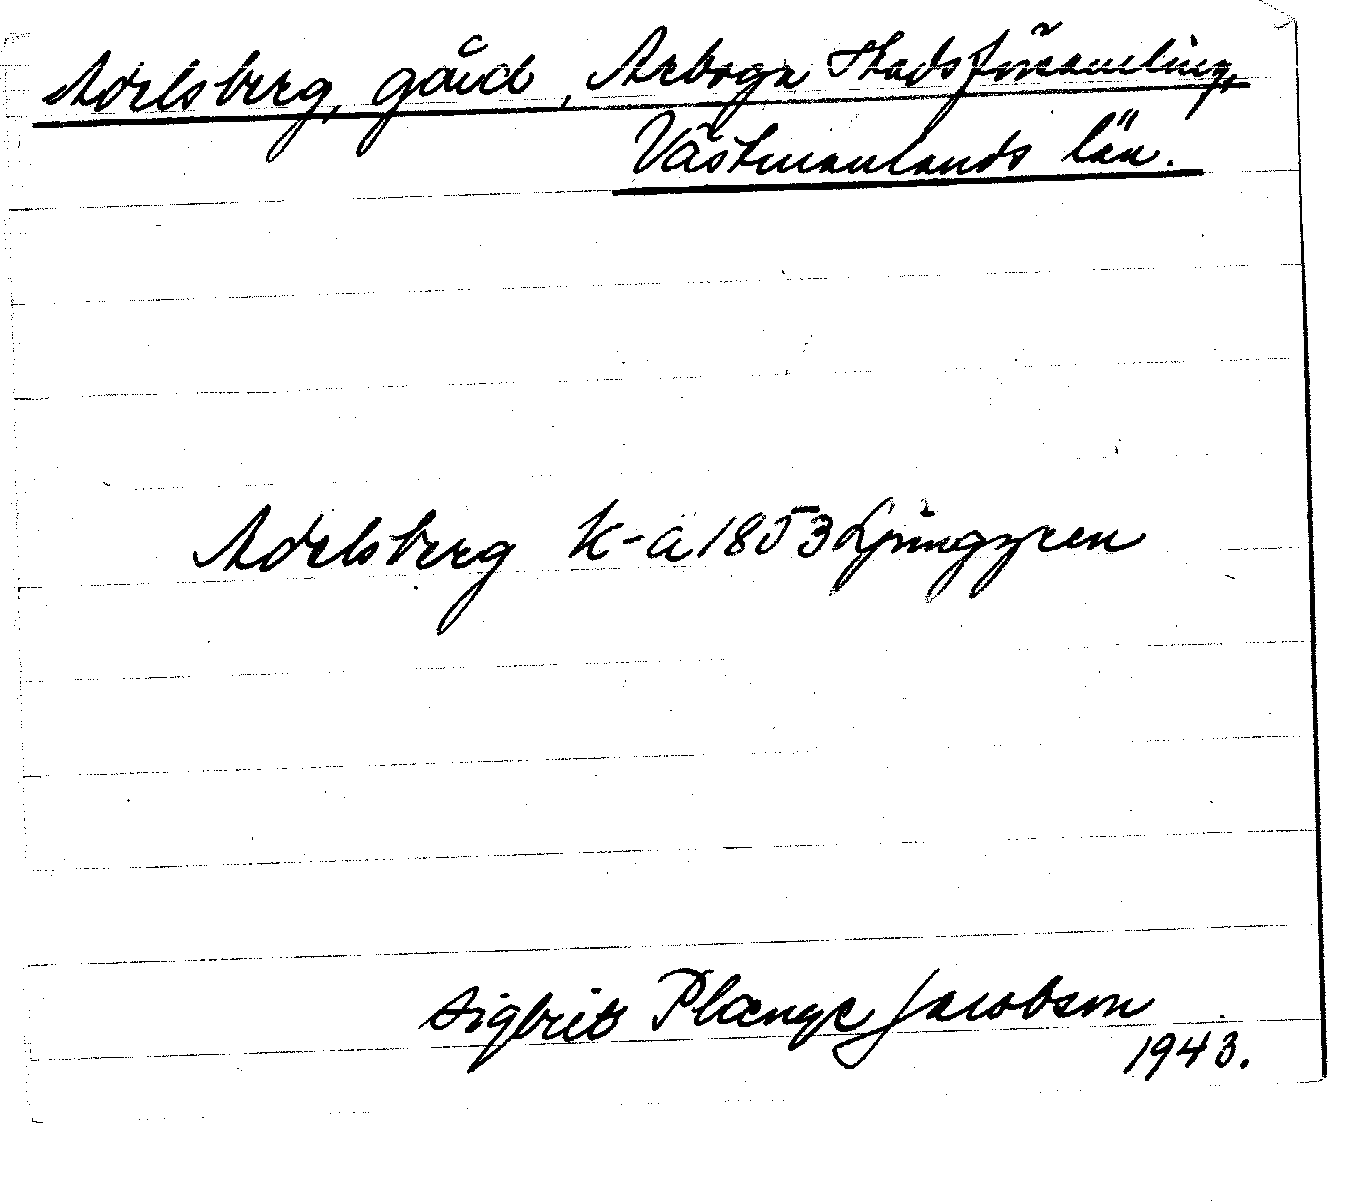 Adelsberg, gård, Arboga Stadsförsamling,
Västmanlands län.
Adelsberg K-a 1853 Ljunggren
Sigbrit Plænge Jacobson
1943.